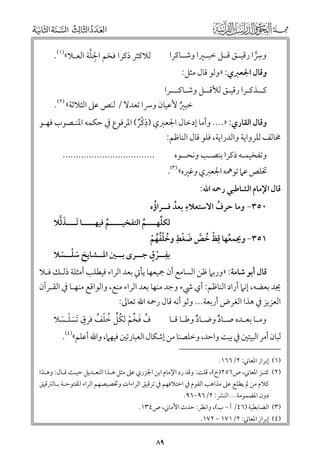 مجلة البحوث والدراسات القرآنية العدد الثالث السنة الثانية
وسِرًّا رقيـــق قـــل خبـــيرًا وشـــاكرا للاكثر ذكرا فخم الجلة العـــلا»(١).
وقال الجعبري: «ولو قال مثل:
كـــذكـــرا رقيـــق للأقـــل وشـــاكـــــرا
خبيرٌ لأعيان وسرا تعدلا / لنص على الثلاثة»(٢).
وقال القاري: «.... وأما إدخال الجعبري (ذِكْرٌ) المرفوع في حكمه المنصوب فهو
مخالف للرواية والدراية، فلو قال الناظم:
وتفخيمـــه ذكرا بنصـــب ونحـــوه ..................................
تخلص عما توهمه الجعبري وغيره»(٣).
قال الإمام الشاطبي رحمه الله:
٣٥٠- وما حرفُ الاستعلاءِ بعدُ فـــراؤُه لكلِّهـــمُ التفخيـــمُ فيهـــا تَذَلَّلَا
٣٥١- ويجمعُها قِظْ خُصَّ ضَغْطٍ وخُلْفُهُمْ بِفِرْقٍ جـــرى بـــين المشـــايخ سَلْسَـــلَا
قال أبو شامة: «وربما ظن السامع أن جميعها يأتي بعد الراء فيطلب أمثلة ذلك فلا
يجد بعضه، إنما أراد الناظم: أي شيء وجد منها بعد الراء منع، والواقع منهـا في القـرآن
العزيز في هذا الغرض أربعة... ولو أنه قال رحمه الله تعالى:
ومـــا بعـــده صـــاد وضـــاد وطـــا وقـــا فُ فَخِّمْ لِكُلٍّ خُلْفُ فرقٍ تَسَلْسَلَا
لبان أمر البيتين في بيت واحد، وخلصنا من إشكال العبارتين فيهما، والله أعلم»(٤).
(١) إبراز المعاني: ٢/ ١٦٦.
(٢) كنز المعاني، ص٢٥٦(خ)، قلت: وقد رد الإمام ابن الجزري على مثل هـذا التعـديل حيـث قـال: وهـذا
كلام من لم يطلع على مذاهب القوم في اختلافهم في ترقيق الراءات وتخصيصهم الراء المفتوحـة بـالترقيق
دون المضمومة... النشر: ٢/ ٩٦-٩٦.
(٣) الضابطية (٤٦/ أ- ب)، وانظر: حدث الأماني، ص١٣٤.
(٤) إبراز المعاني: ٢/ ١٧١- ١٧٢.
٨٩